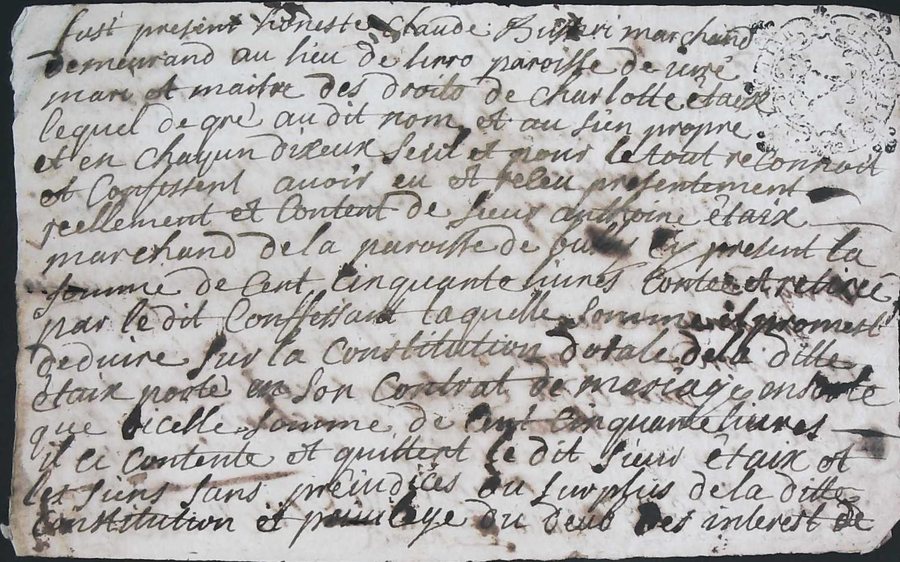 fust present honeste Claude marchand
demeurand au lieu de livro paroisse de
mari et maitre des droits de charlotte étaix
lequel de gré audit nom et au sien propre
et en chaqun dixeux seul et pour le tout reconnoit
et Confessent avoir eu et releu presentement
reellement et Content de sieur anthoine étaix
marchand de la paroisse de present la
somme de Cent Cinquante livres Contée et retirée
par le dit Confessant laquelle somme il promest
deduire sur la Constitution dotale de la ditte
étaix porté en son Contrat de mariage ensorte
que dicelle somme de Cent Cinquante livres
il ce Contente et quittent le dit sieur étaix et
les siens sans préiudices du surplus de la ditte
Constitution et privilege du deub des interest de